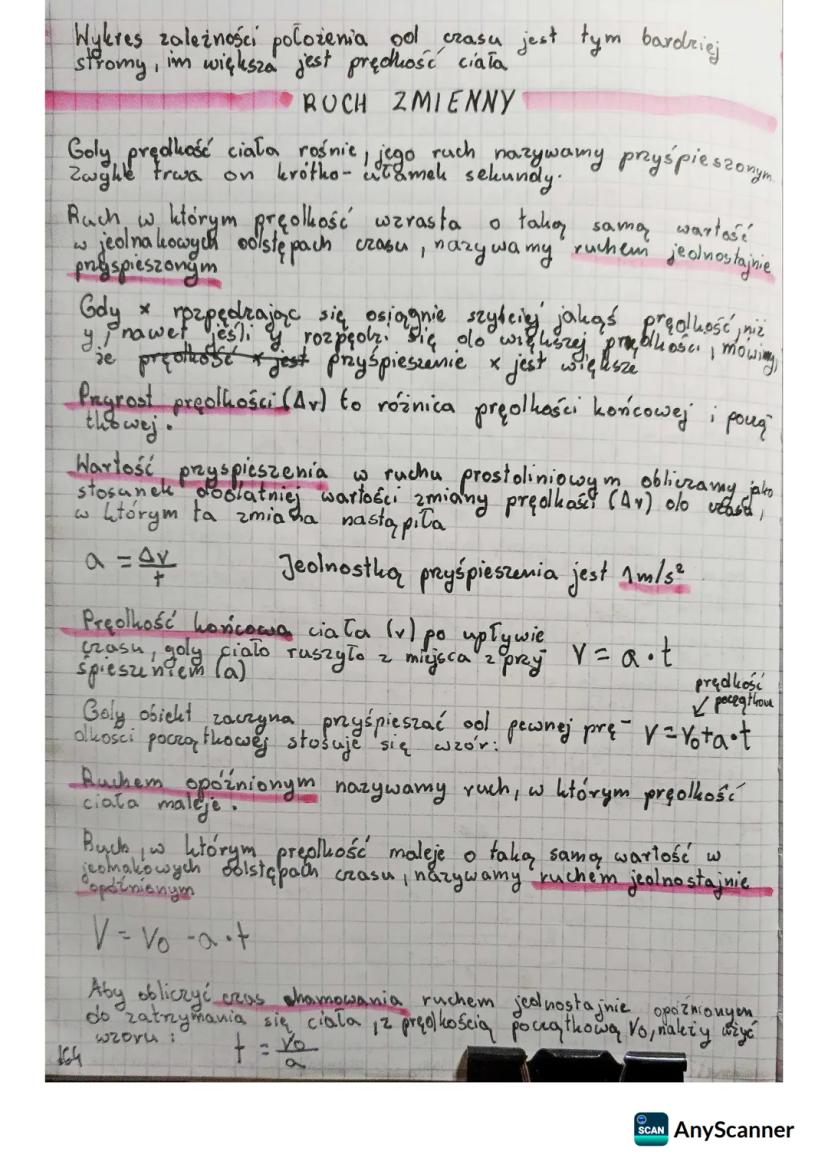 Wykres zależności położenia od czasu jest tym bardziej
stromy, im większa jest prędkość ciała
RUCH ZMIENNY
Gdy prędkość ciała rośnie, jego ruch nazywamy przyśpieszonym
Zwykle trwa on krótko - ułamek sekundy.
Ruch w którym prędkość wzrasta o taką samą wartość
w jednakowych odstępach czasu, nazywamy ruchem jednostajnie
przyspieszonym
Gdy x rozpędzając się osiągnie szybciej jakąś prędkość, niż
y, nawet jeśli y rozpędzi się do większej prędkości, mówimy,
że prędkość x jest przyśpieszenie x jest większe
Przyrost prędkości (Δv) to różnica prędkości końcowej i począ
tkowej.
Wartość przyspieszenia w ruchu prostoliniowym obliczamy jako
stosunek dodatniej wartości zmiany prędkości (Δv) do czasu,
w którym ta zmiana nastąpiła
a = Δv/t Jednostką przyśpieszenia jest 1m/s²
Prędkość końcowa ciała (v) po upływie
czasu, gdy ciało ruszyło z miejsca z przy
śpieszeniem (a)
V = a · t
prędkość
↙ początkowa
Gdy obiekt zaczyna przyśpieszać od pewnej prę-
dkości początkowej stosuje się wzór:
V = V₀ + a · t
Ruchem opóźnionym nazywamy ruch, w którym prędkość
ciała maleje.
Ruch, w którym prędkość maleje o taką samą wartość w
jednakowych odstępach czasu, nazywamy ruchem jednostajnie
opóźnionym
V = V₀ - a · t
Aby obliczyć czas hamowania ruchem jednostajnie opóźnionym
do zatrzymania się ciała, z prędkością początkową V₀, należy użyć
wzoru: t = V₀/a
164
SCAN AnyScanner